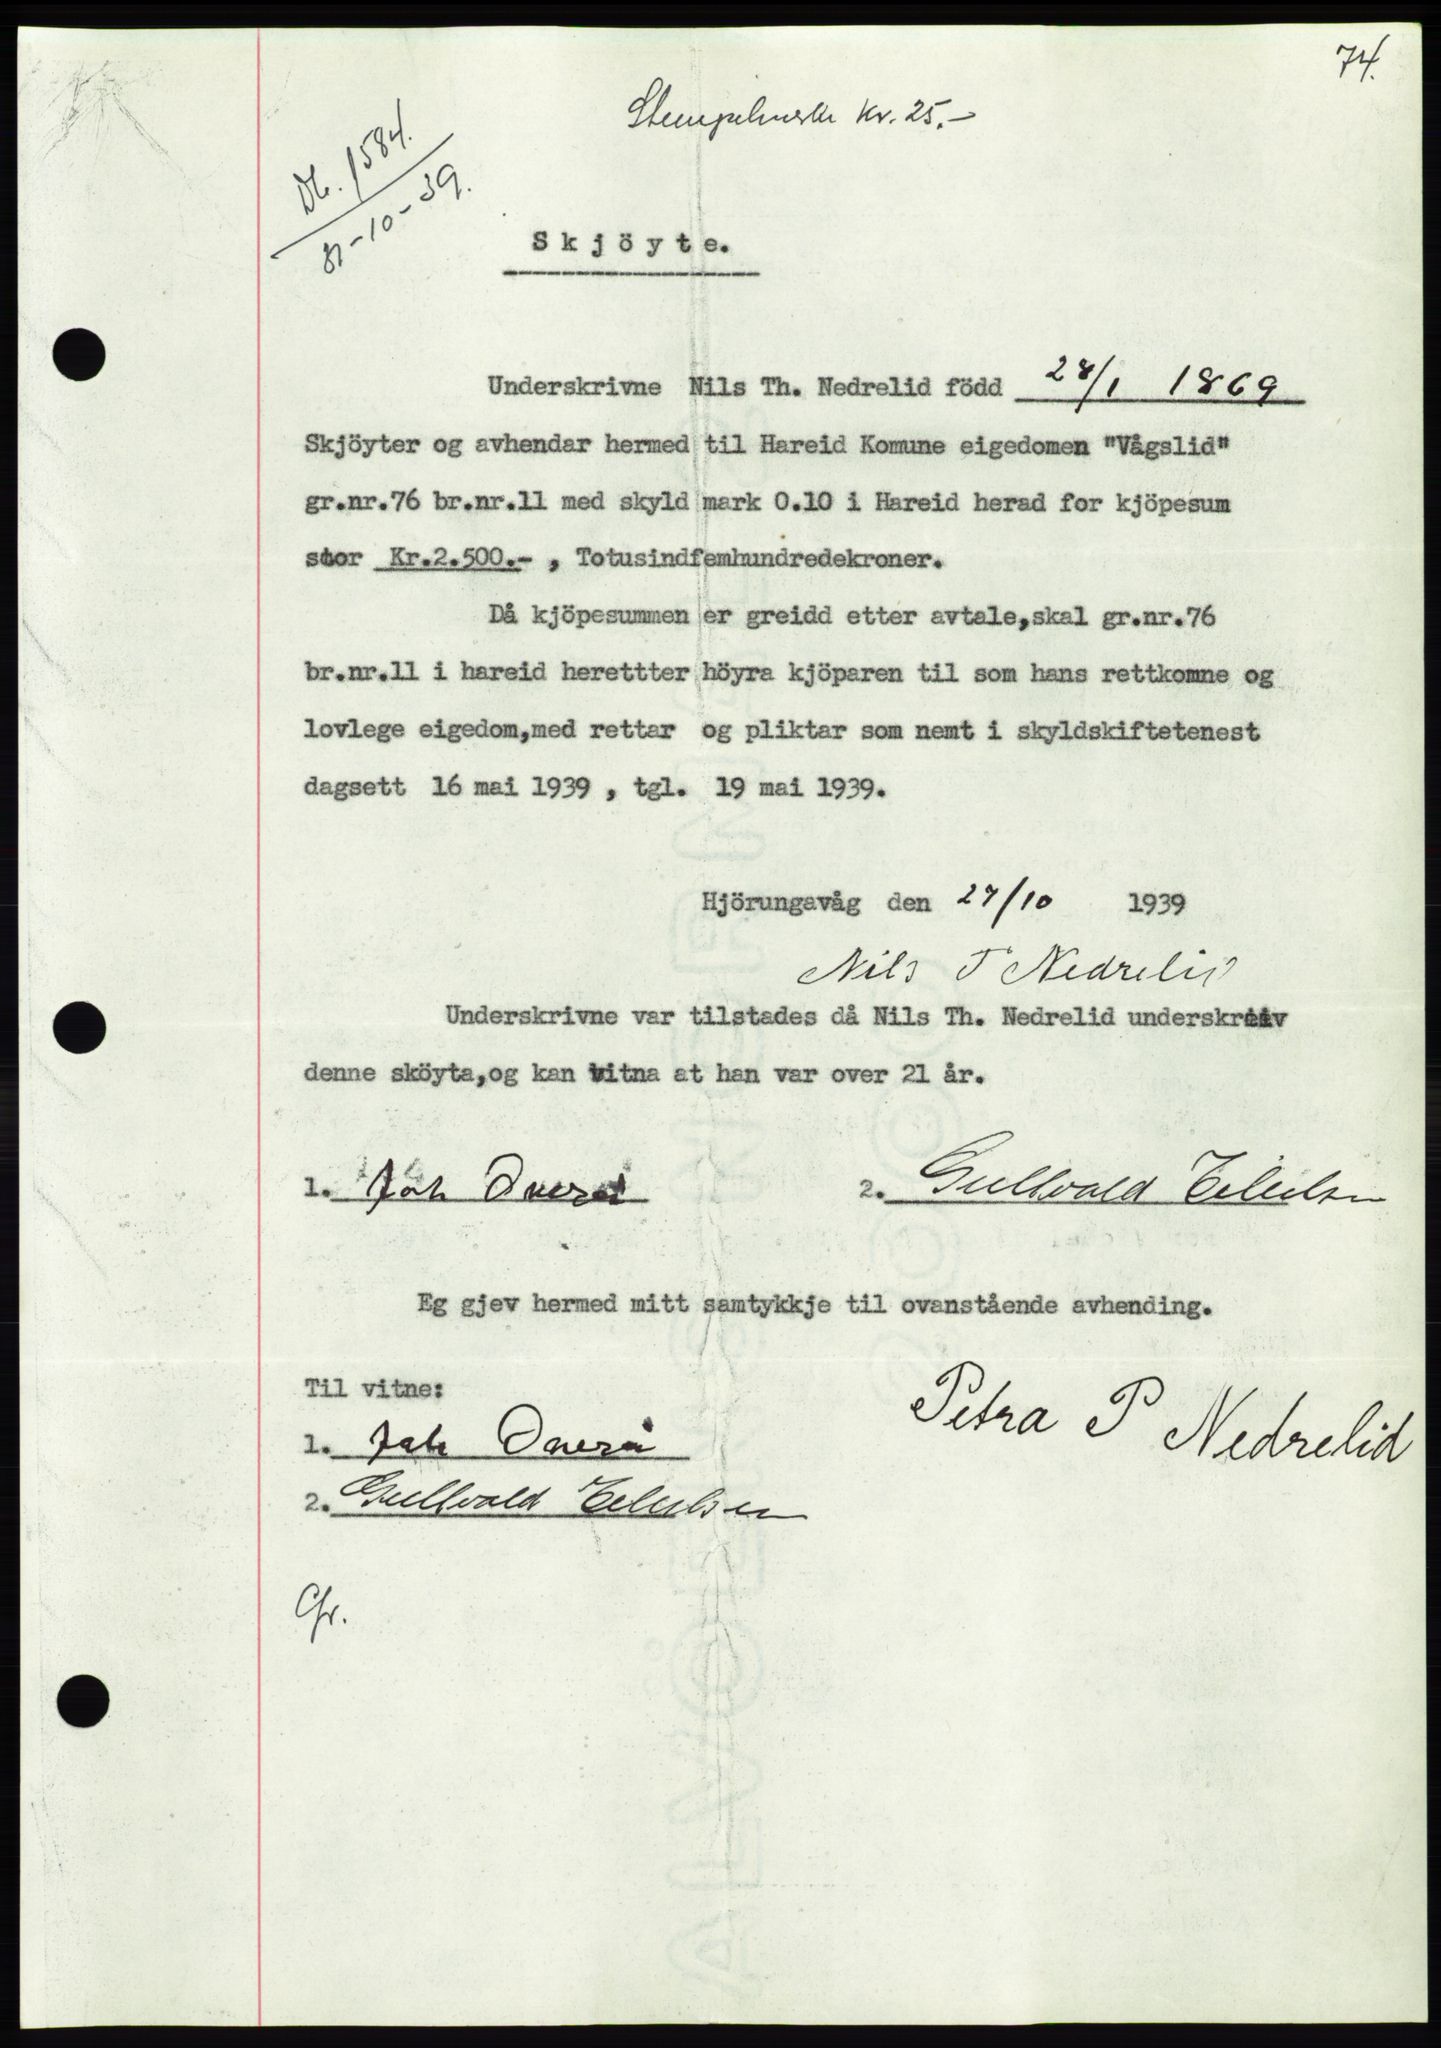 74.
Stempelmerke kr. 25.-
Db. 1584.
31-10-39.
Skjöyte.
Underskrivne Nils Th. Nedrelid född 28/1 1869
Skjöyter og avhendar hermed til Hareid Komune eigedomen "Vågslid"
gr.nr.76 br.nr.11 med skyld mark 0.10 i Hareid herad for kjöpesum
stor Kr.2.500.- , Totusindfemhundredekroner.
Då kjöpesummen er greidd etter avtale,skal gr.nr.76
br.nr.11 i hareid herettter höyra kjöparen til som hans rettkomne og
lovlege eigedom,med rettar og pliktar som nemt i skyldskiftetenest
dagsett 16 mai 1939 , tgl. 19 mai 1939.
Hjörungavåg den 27/10 1939
Nils T Nedrelid
Underskrivne var tilstades då Nils Th. Nedrelid underskreiv
denne sköyta,og kan vitna at han var over 21 år.
1. Joh Overå 2. Gullvald
Eg gjev hermed mitt samtykkje til ovanstående avhending.
Til vitne:
Petra P Nedrelid
1. Joh Overå
2. Gullvald